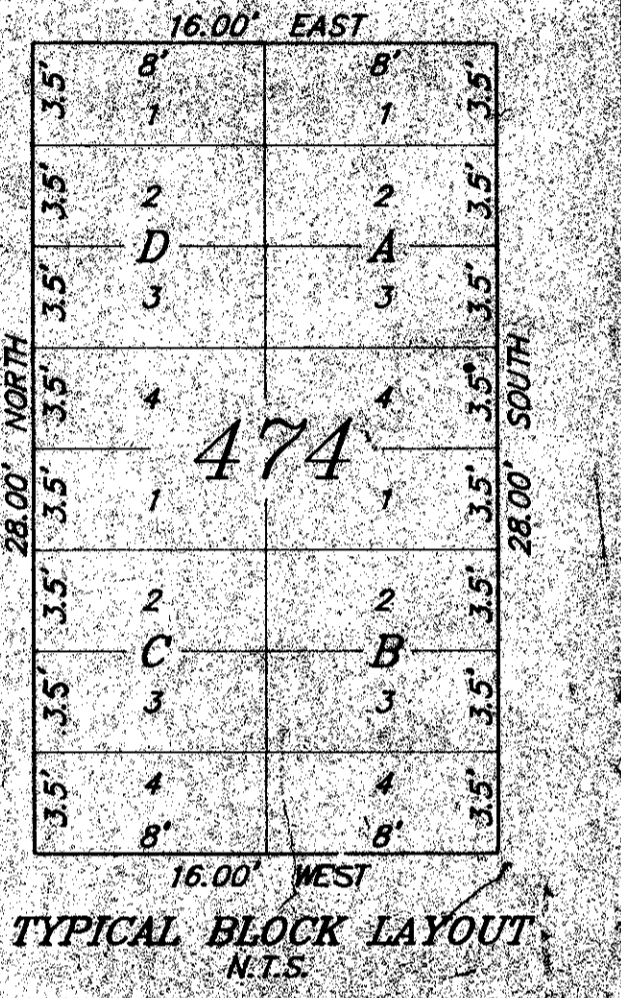 16.00' EAST
8' 8'
3.5' 1 1 3.5'
3.5' 2 2 3.5'
D A
3.5' 3 3 3.5'
28.00' NORTH
28.00' SOUTH
3.5' 4 4 3.5'
474
3.5' 1 1 3.5'
3.5' 2 2 3.5'
C B
3.5' 3 3 3.5'
3.5' 4 4 3.5'
8' 8'
16.00' WEST
TYPICAL BLOCK LAYOUT
N.T.S.